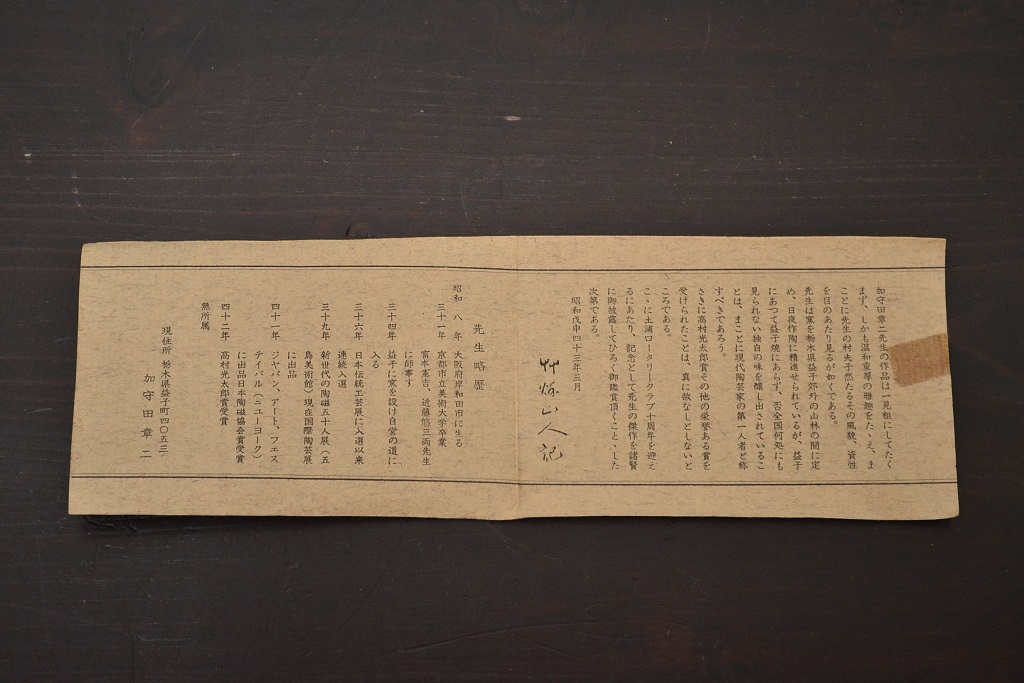 加守田章二先生の作品は一見粗にしてたく
まず、しかも温和重厚の雅趣をたゝえ、ま
ことに先生の村夫子然たるその風貌、資性
を目のあたり見るが如くである。
先生は窯を栃木県益子郊外の山林の間に定
め、日夜作陶に精進せられているが、益子
にあつて益子焼にあらず、否全国何処にも
見られない独自の味を醸し出されているこ
とは、まことに現代陶芸家の第一人者と称
すべきであろう。
さきに高村光太郎賞その他の栄誉ある賞を
受けられたことは、真に故なしとしないと
ころである。
こゝに土浦ロータリークラブ十周年を迎え
るにあたり、記念として先生の傑作を諸賢
に御披露してひろく御鑑賞頂くこと、した
次第である。
昭和戊申四十三年三月
山人記
先生略歴
昭和 八 年 大阪府岸和田市に生る
三十一年 京都市立美術大学卒業
富本憲吉、近藤悠三両先生
に師事す
三十四年 益子に窯を設け自営の道に
入る
三十六年 日本伝統工芸展に入選以来
連続入選
三十九年 新世代の陶磁五十人展(五
島美術館)現在国際陶芸展
に出品
四十一年 ジヤパン、アート、フエス
テイバル(ニユーヨーク)
に出品日本陶磁協会賞受賞
四十二年 高村光太郎賞受賞
無所属
現住所 栃木県益子町四〇五三
加守田章二